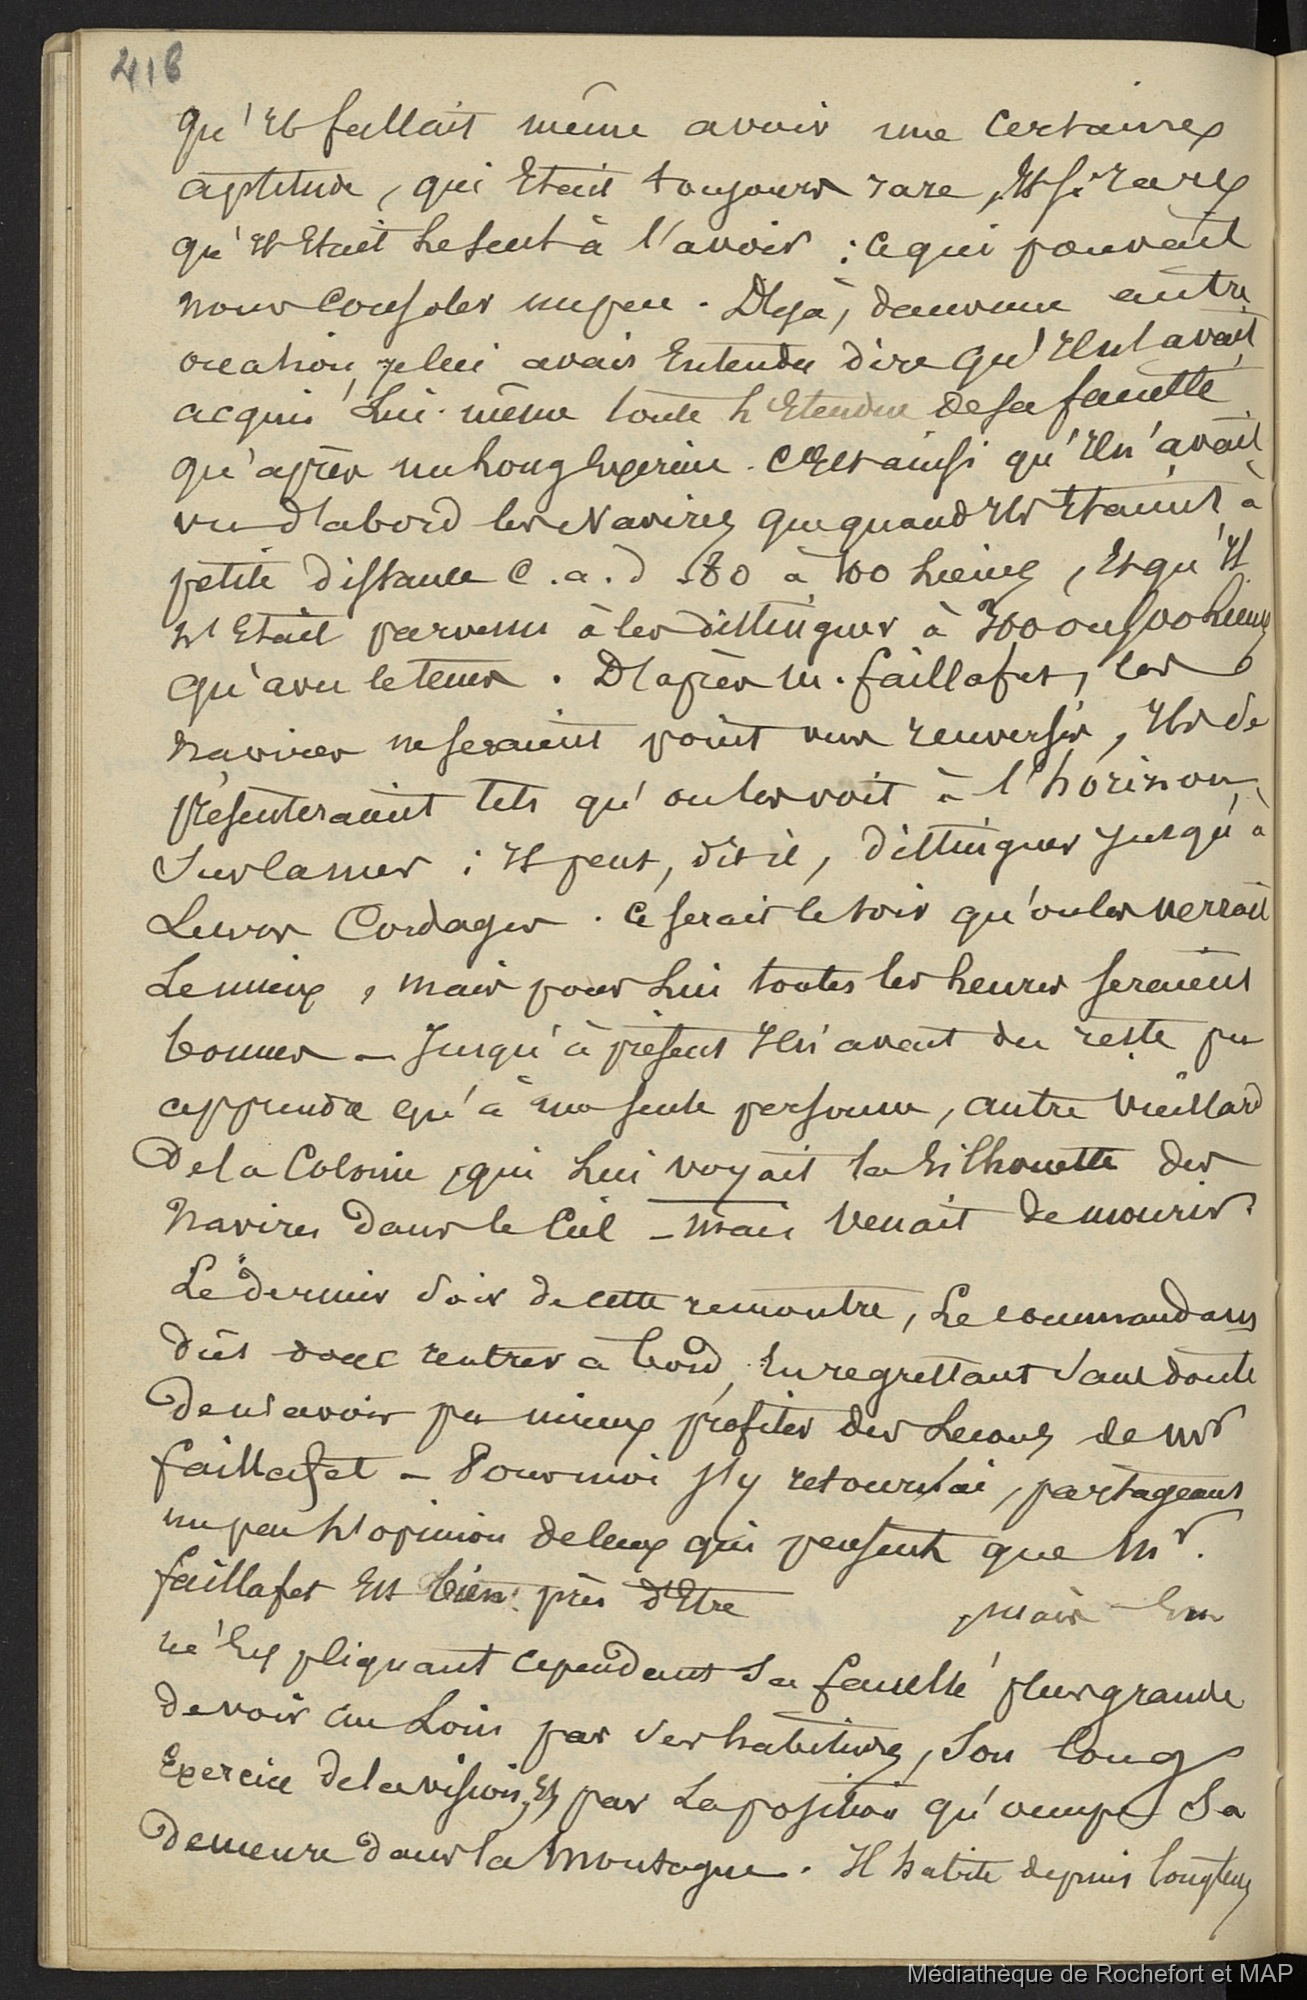 418
qu'il fallait même avoir une certaine
aptitude, qui Etait toujours rare, Et si rare
qu'il Etait le seul à l'avoir : ce qui pouvait
nous consoler un peu. Déjà, dans une autre
occasion, je lui avais Entendu dire qu'il n'avait
acquis lui-même toute l'Etendue de sa faculté
qu'après un long Exercice. C'Est ainsi qu'il n'avait
vu d'abord les Navires que quand ils Etaient à
petite distance c.a.d. 80 à 100 lieues, Et qu'il
n'Etait parvenu à les distinguer à 300 ou 500 lieues
qu'avec le tems. D'après M. faillafet, les
navires ne seraient point vus renversés, ils se
présenteraient tels qu'on les voit à l'horizon,
sur la mer : il peut, dit il, distinguer jusqu'à
leurs Cordages. ce serait le soir qu'on les verrait
le mieux, mais pour lui toutes les heures seraient
bonnes — jusqu'à présent il n'avait du reste pu
apprendre qu'à une seule personne, autre vieillard
de la Colonie, qui lui voyait la silhouette des
navires dans le Ciel — mais venait de mourir.
Le dernier soir de cette rencontre, le commandant
dût donc rentrer à bord, En regrettant sans doute
de n'avoir pu mieux profiter des leçons de Mr
faillafet — Pour moi j'y retournai, partageant
un peu l'opinion de ceux qui pensent que Mr.
faillafet Est bien près d'Etre mais En
m'Expliquant cependant sa faculté plus grande
de voir au loin par ses habitudes, son long
Exercice de la vision, Et par la position qu'occupe sa
demeure dans la Montagne. Il habite depuis longtems
Médiathèque de Rochefort et MAP